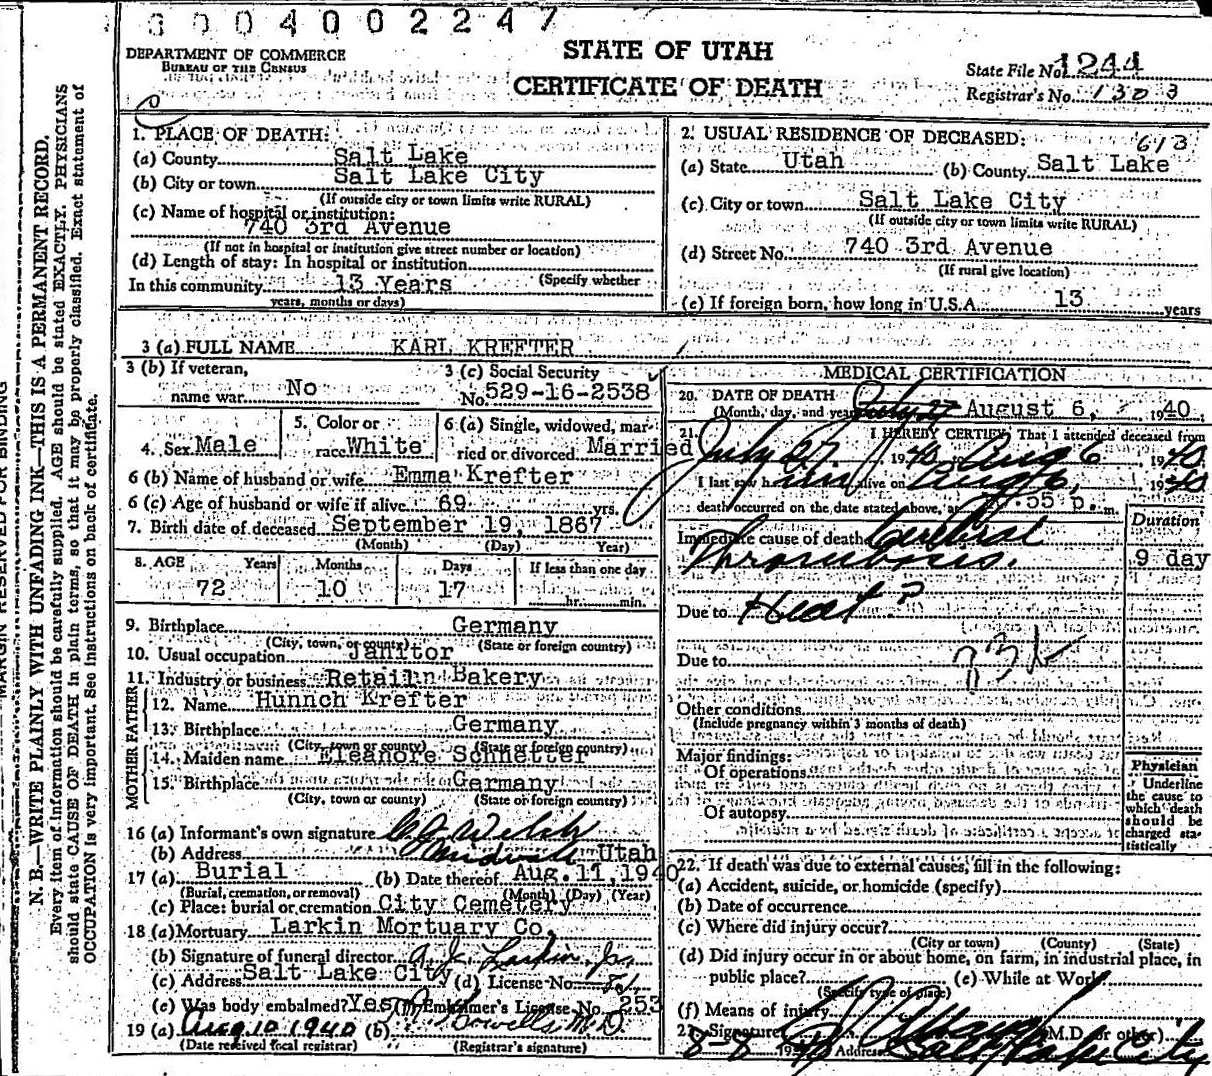 3004002247
DEPARTMENT OF COMMERCE
BUREAU OF THE CENSUS
STATE OF UTAH
CERTIFICATE OF DEATH
State File No. 1244
Registrar's No. 1303
MARGIN RESERVED FOR BINDING
N. B.—WRITE PLAINLY WITH UNFADING INK—THIS IS A PERMANENT RECORD.
Every item of information should be carefully supplied. AGE should be stated EXACTLY. PHYSICIANS
should state CAUSE OF DEATH in plain terms, so that it may be properly classified. Exact statement of
OCCUPATION is very important. See instructions on back of certificate.
1. PLACE OF DEATH:
(a) County Salt Lake
(b) City or town Salt Lake City
(If outside city or town limits write RURAL)
(c) Name of hospital or institution:
740 3rd Avenue
(If not in hospital or institution give street number or location)
(d) Length of stay: In hospital or institution
In this community 13 Years (Specify whether
years, months or days)
2. USUAL RESIDENCE OF DECEASED: 613
(a) State Utah (b) County Salt Lake
(c) City or town Salt Lake City
(If outside city or town limits write RURAL)
(d) Street No. 740 3rd Avenue
(If rural give location)
(e) If foreign born, how long in U.S.A. 13 years
3 (a) FULL NAME KARL KREFTER
3 (b) If veteran,
name war No
3 (c) Social Security
No. 529-16-2538
4. Sex Male
5. Color or
race White
6 (a) Single, widowed, mar-
ried or divorced Married
6 (b) Name of husband or wife Emma Krefter
6 (c) Age of husband or wife if alive 69 yrs.
7. Birth date of deceased September 19, 1867
(Month) (Day) Year)
8. AGE Years Months Days If less than one day
72 10 17 hr. min.
9. Birthplace Germany
(City, town, or county) (State or foreign country)
10. Usual occupation Janitor
11. Industry or business Retail Bakery
FATHER
12. Name Hunnch Krefter
13. Birthplace Germany
(City, town or county) (State or foreign country)
MOTHER
14. Maiden name Eleanore Schnetter
15. Birthplace Germany
(City, town or county) (State or foreign country)
16 (a) Informant's own signature
(b) Address Midvale Utah
17 (a) Burial (b) Date thereof Aug. 11, 1940
(Burial, cremation, or removal) (Month) (Day) (Year)
(c) Place: burial or cremation City Cemetery
18 (a) Mortuary Larkin Mortuary Co.
(b) Signature of funeral director A. J. Larkin Jr.
(c) Address Salt Lake City (d) License No.
(e) Was body embalmed? Yes (f) Embalmer's License No. 253
19 (a) Aug 10 1940 (b) M.D.
(Date received local registrar) (Registrar's signature)
MEDICAL CERTIFICATION
20. DATE OF DEATH
(Month, day, and year) July 27 August 6, 1940.
21. I HEREBY CERTIFY, That I attended deceased from
July 27, 1940 to Aug 6 1940
I last saw him alive on Aug 6, 1940
death occurred on the date stated above, at 55 p. m.
Immediate cause of death Cerebral
Thrombosis.
Duration
9 day
Due to Heat?
Due to
Other conditions
(Include pregnancy within 3 months of death)
Major findings:
Of operations
Of autopsy
Physician
Underline
the cause to
which death
should be
charged sta-
tistically
22. If death was due to external causes, fill in the following:
(a) Accident, suicide, or homicide (specify)
(b) Date of occurrence
(c) Where did injury occur?
(City or town) (County) (State)
(d) Did injury occur in or about home, on farm, in industrial place, in
public place? (e) While at Work
(Specify type of place)
(f) Means of injury
23. Signature (M.D. or other)
8-8 1940 Address Salt Lake City